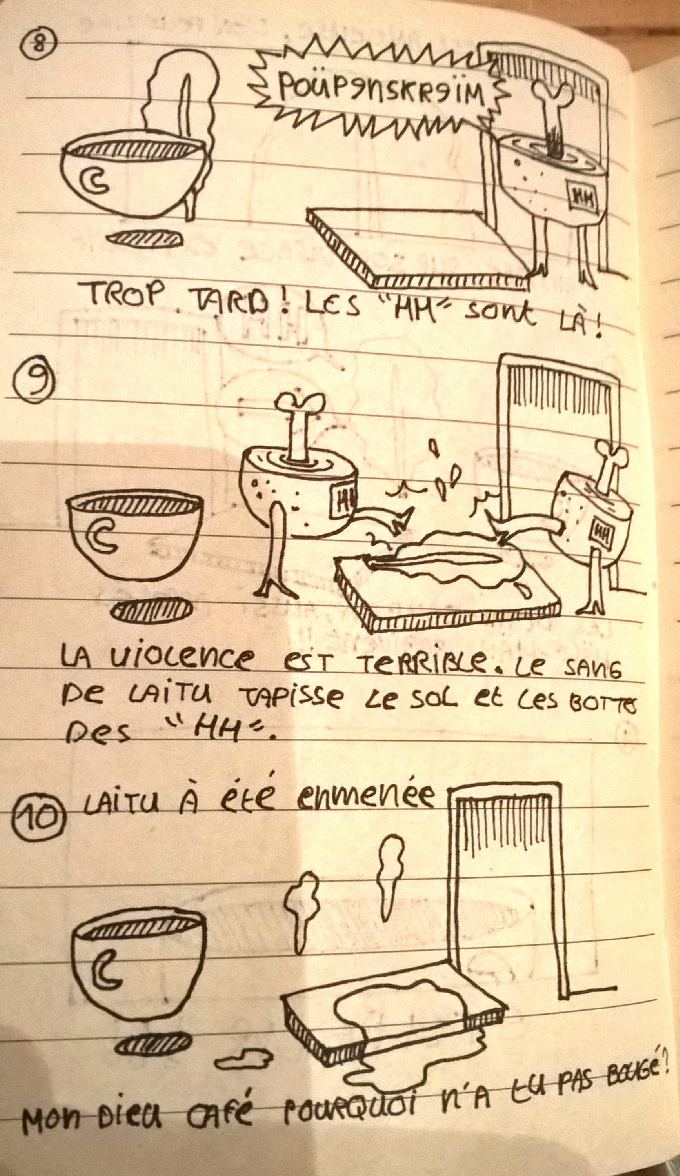 8
POÜPƏNSKRƏÏM
C
HH
TROP TARD! LES "HH" SONT LÀ!
9
C
HH
HH
LA VIOLENCE EST TERRIBLE. LE SANG
DE LAITU TAPISSE LE SOL ET LES BOTTES
DES "HH".
10
LAITU À ÉTÉ ENMENÉE
C
MON DIEU CAFÉ POURQUOI N'A TU PAS BOUGÉ?